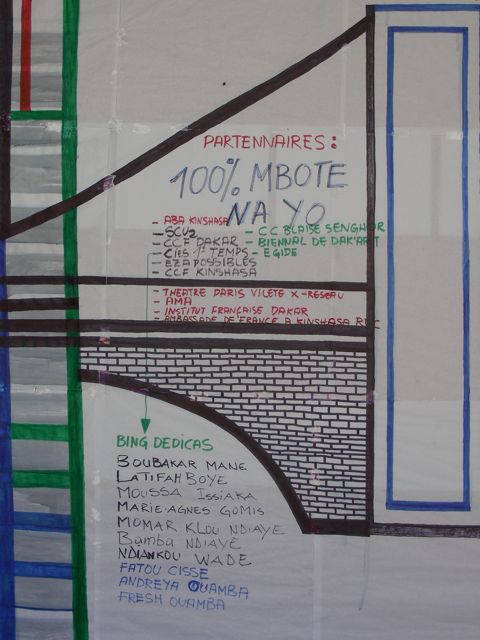 PARTENNAIRES:
100% MBOTE
NA YO
- ABA KINSHASA
- SCU2
- CCF DAKAR
- Cies 1er TEMPS
- EZA POSSIBLES
- CCF KINSHASA
- C C BLAISE SENGHOR
- BIENNAL DE DAK'ART
- EGIDE
- THEATRE PARIS VILETE X-RESEAU
- AMA
- INSTITUT FRANÇAISE DAKAR
- AMBASSADE DE FRANCE A KINSHASA RDC
BING DEDICAS
BOUBAKAR MANE
LATIFAH BOYE
MOUSSA ISSIAKA
MARIE-AGNES GOMIS
MOMAR KLOU NDIAYE
Bamba NDIAYE
NDIANKOU WADE
FATOU CISSE
ANDREYA OUAMBA
FRESH OUAMBA